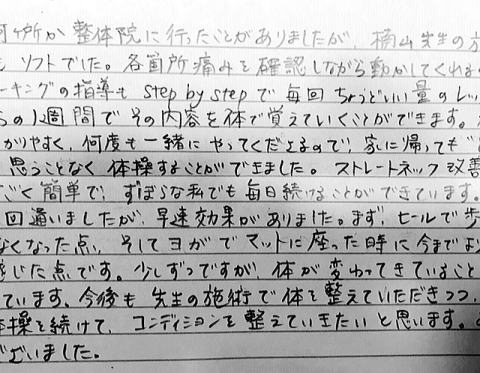 何ヶ所か整体院に行ったことがありましたが、楠山先生の方
もソフトでした。各箇所痛みを確認しながら動かしてくれる
ーキングの指導もstep by stepで毎回ちょうどいい量のレッ
らの1週間でその内容を体で覚えていくことができます。
かりやすく、何度も一緒にやってくださるので、家に帰っても"
思うことなく体操することができました。ストレートネック改善
ごく簡単で、ずぼらな私でも毎日続けることができています。
回通いましたが、早速効果がありました。まず、ヒールで歩
なくなった点、そしてヨガでマットに座った時に今までよ
感じた点です。少しずつですが、体が変わってきていること
ています。今後も先生の施術で体を整えていただきつつ、
体操を続けて、コンディションを整えていきたいと思います。
ございました。